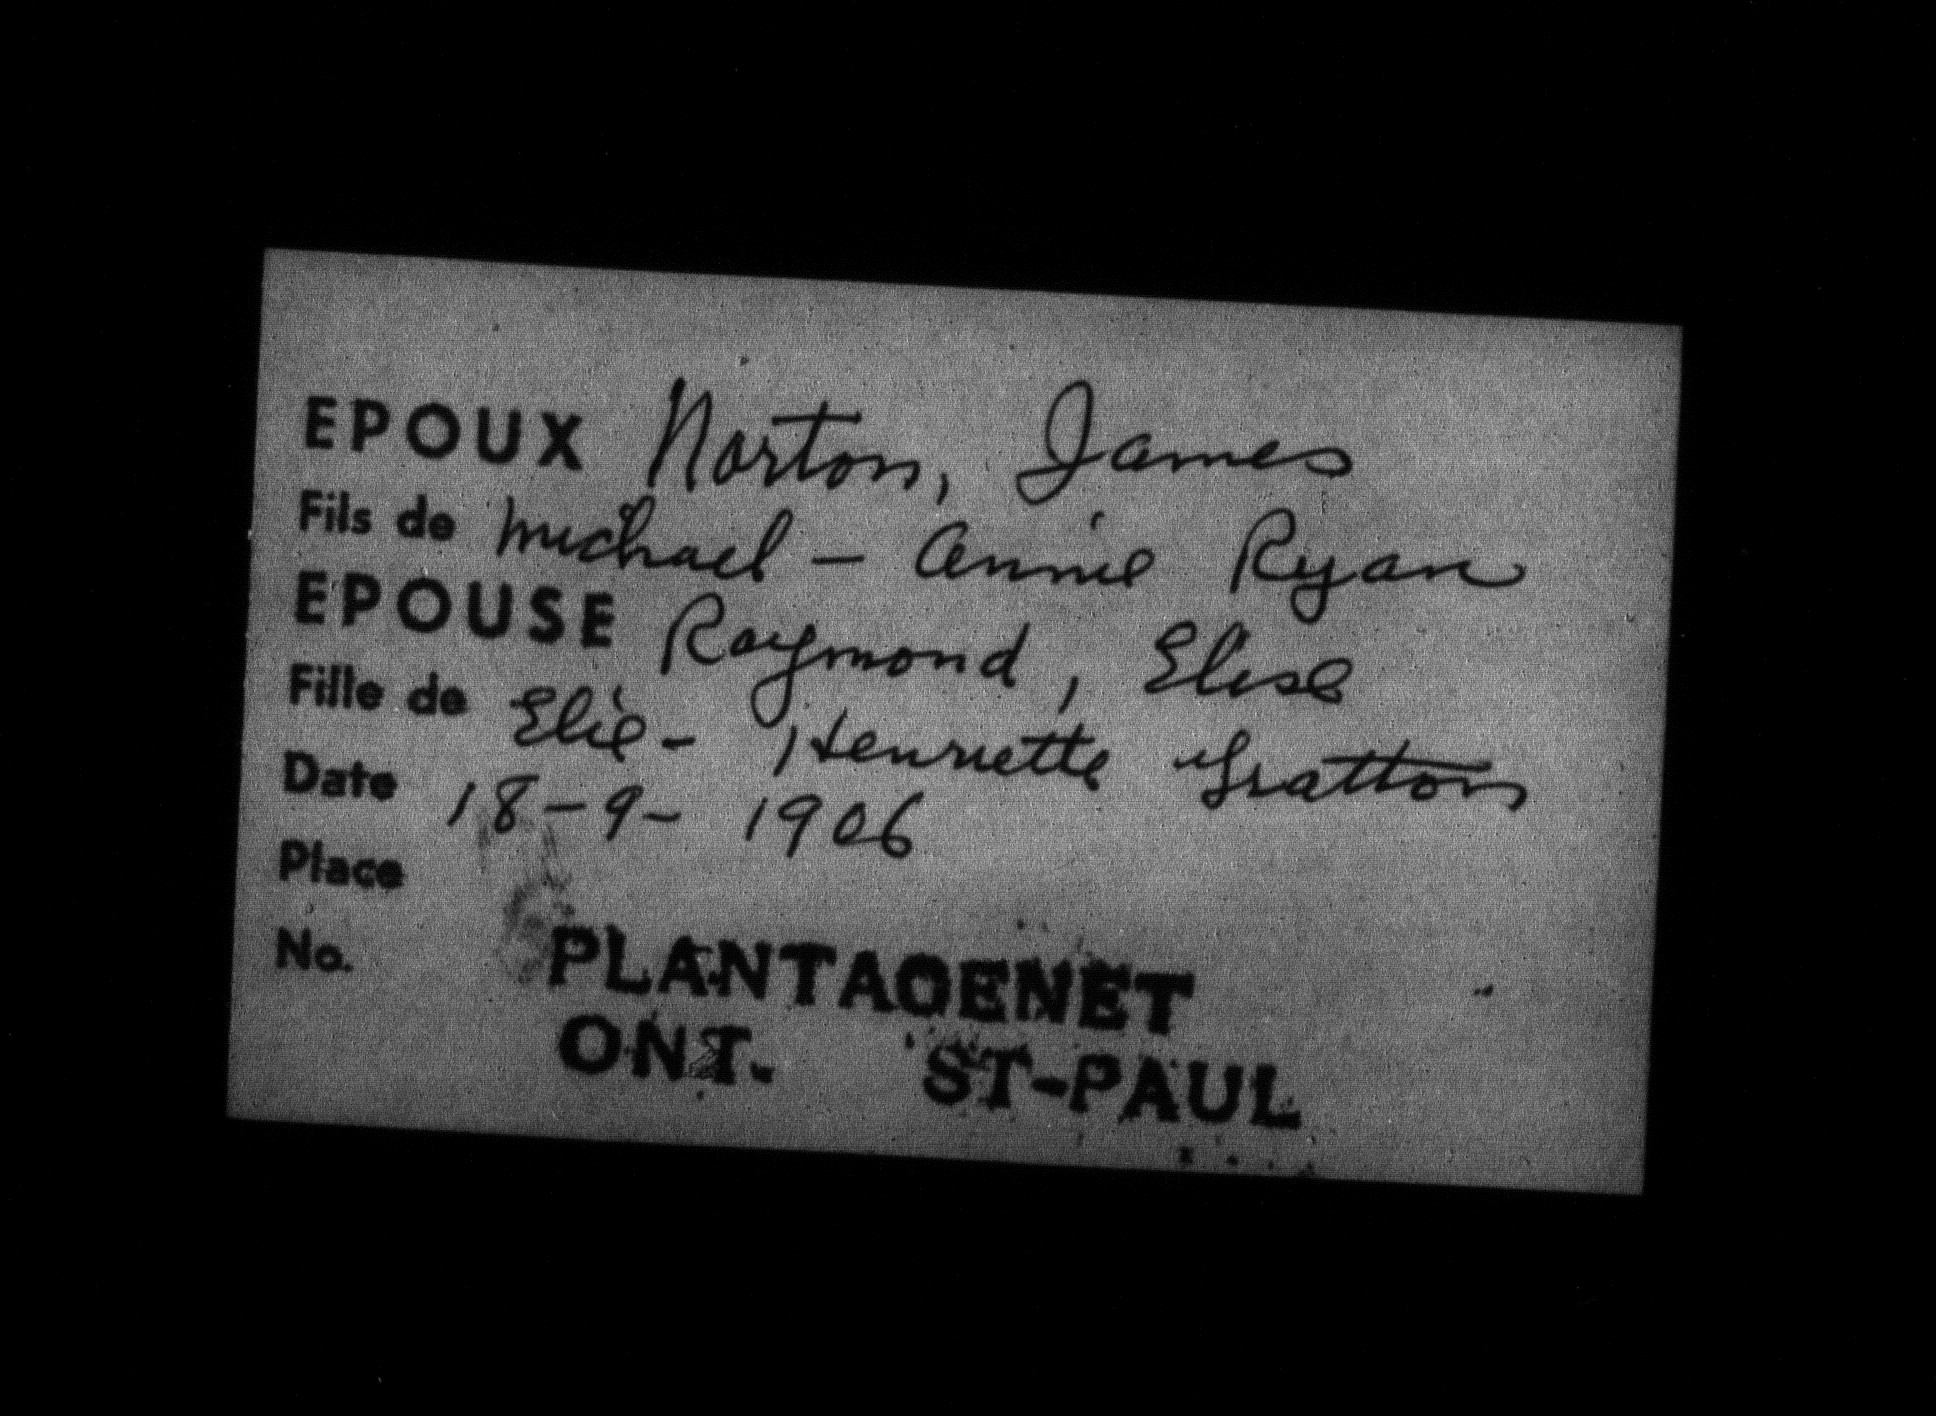 EPOUX Norton, James
Fils de Michael - Annie Ryan
EPOUSE Raymond, Elise
Fille de Elie - Henriette Gratton
Date 18-9-1906
Place
No.
PLANTAGENET
ONT. ST-PAUL